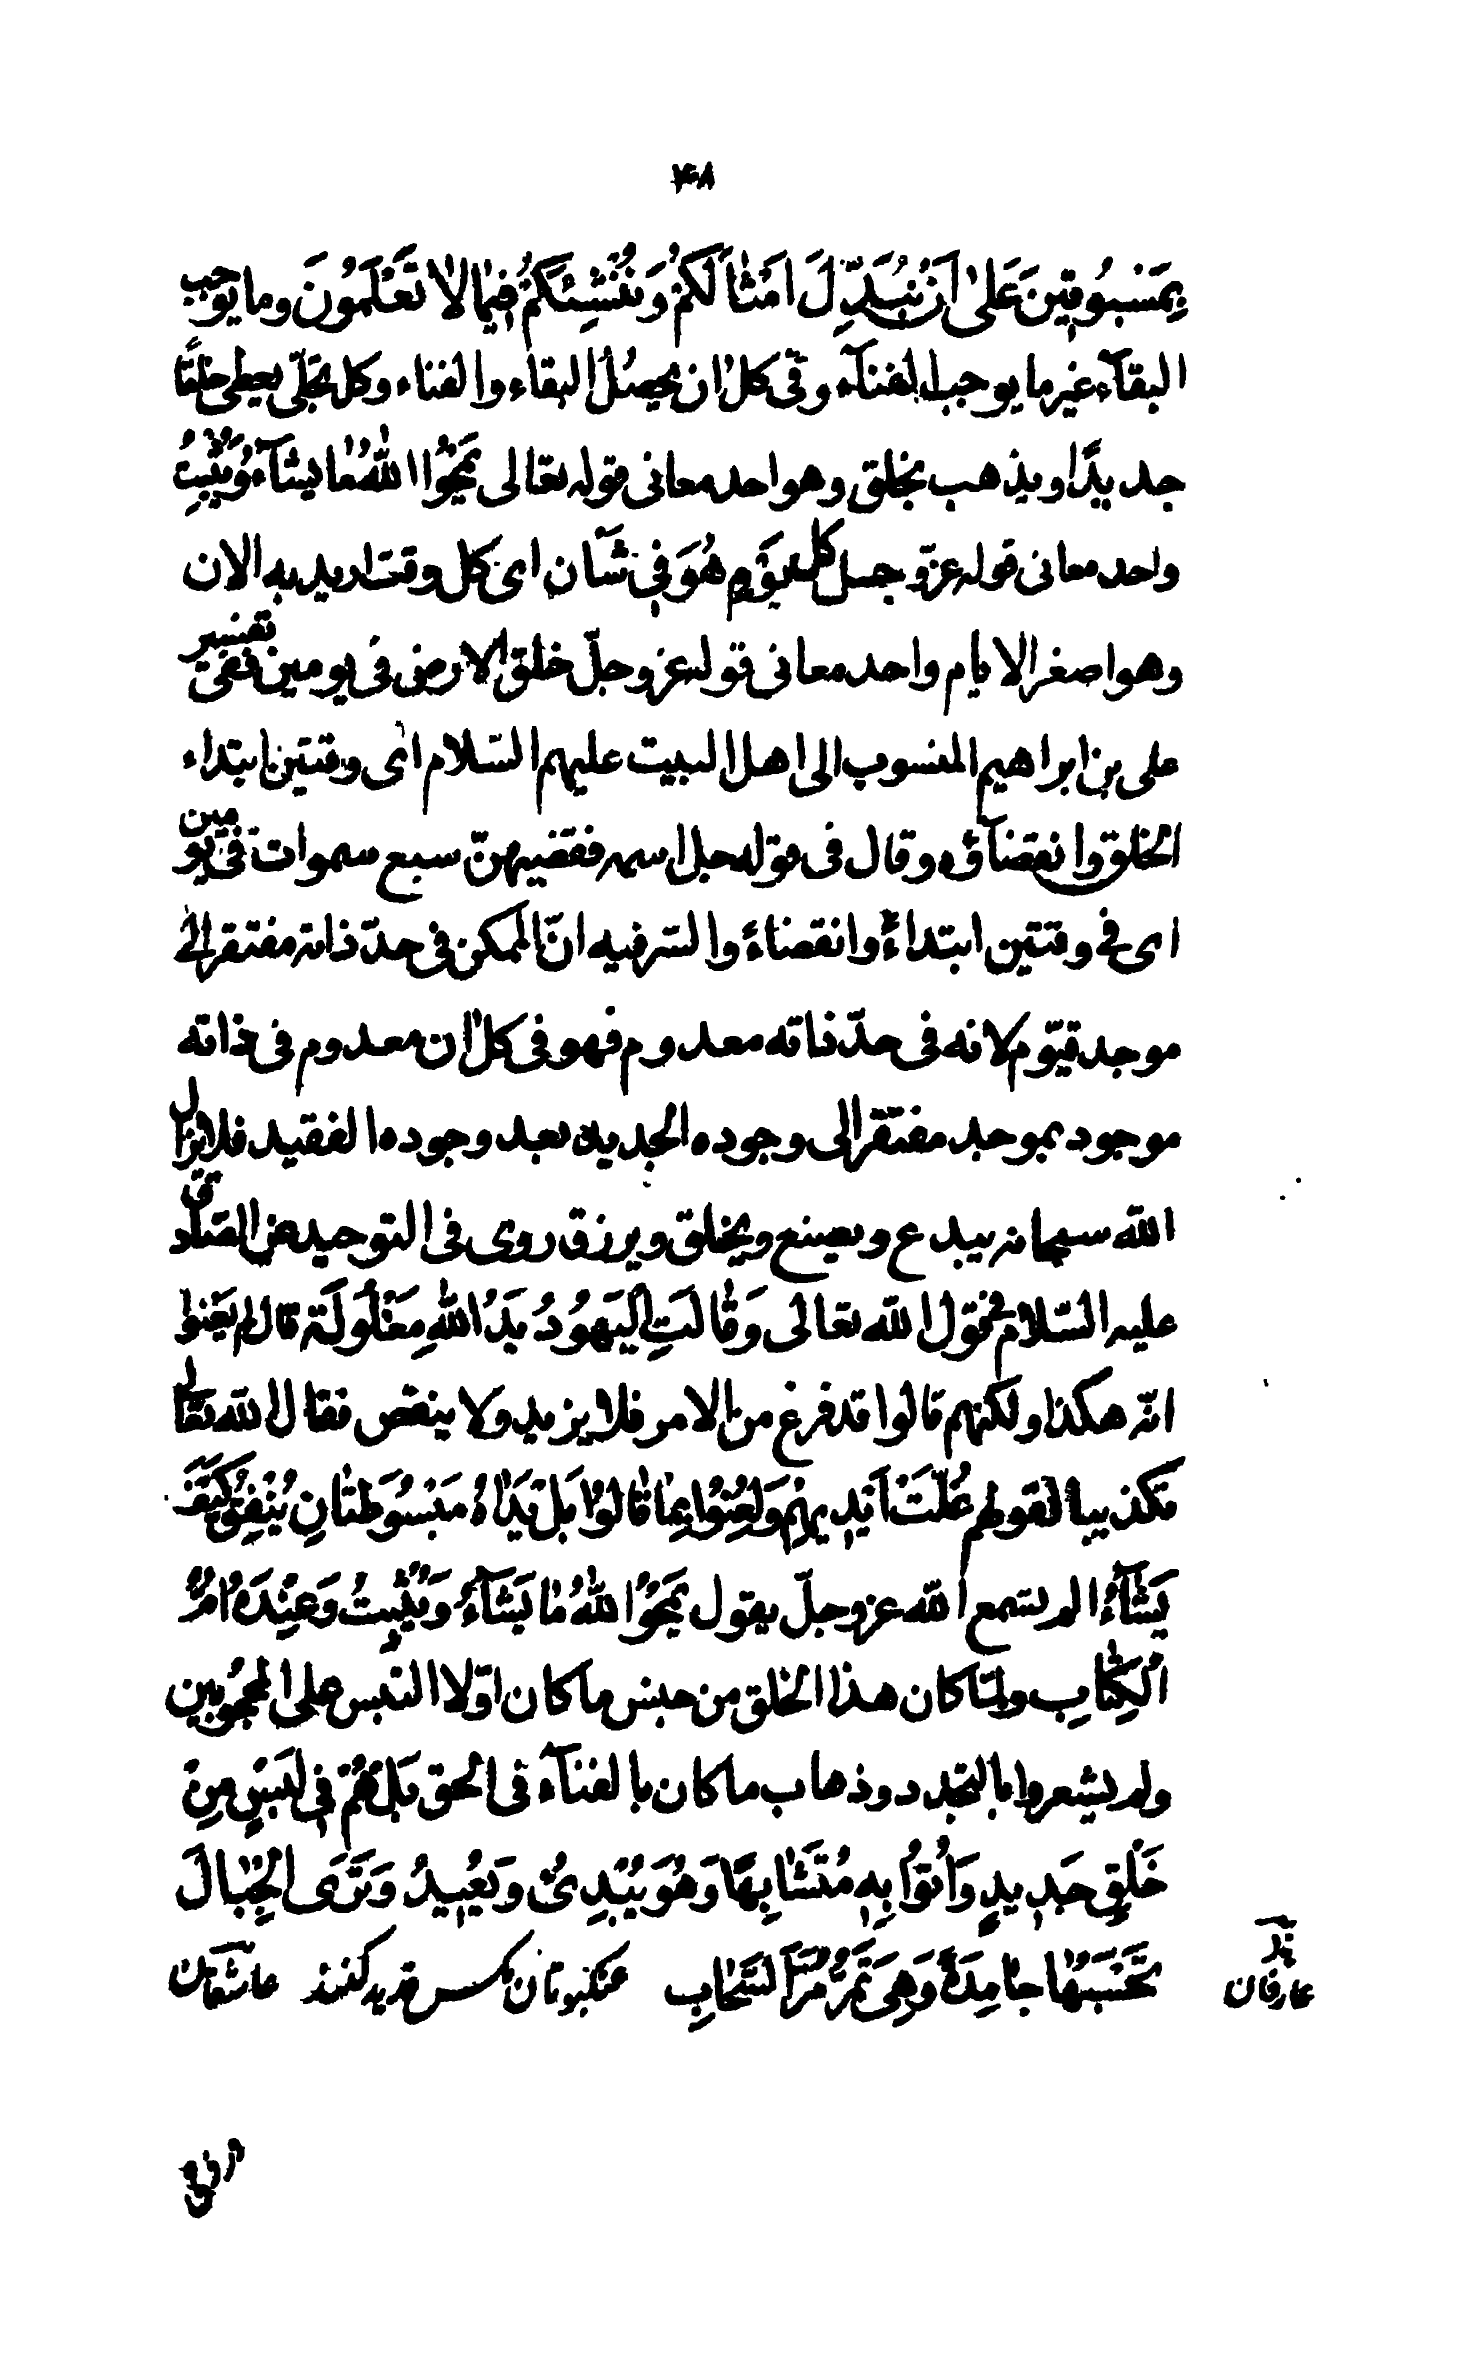 ۴۰۸
بِمَسْبُوقِينَ عَلىٰ اَنْ نُبَدِّلَ اَمْثٰالَكُمْ وَنُنْشِئَكُمْ فِيمٰا لاٰ تَعْلَمُونَ وما يوجب
البقآء غير ما يوجب الفنآء وفى كل ان يحصل البقاء والفناء وكل تجلّى يعطى خلقًا
جديدًا ويذهب بخلق وهو احد معانى قوله تعالى يَمْحُوا اللّٰهُ مٰا يشآءُ وَيُثْبِتُ
واحد معانى قوله عزّ وجل كل يَوْمٍ هُوَ فِى شَأن اى كل وقت اريد به الان
وهو اصغر الايام واحد معانى قوله عز وجلّ خلق الارض فى يومين ففى تفسير
على بن ابراهيم المنسوب الى اهل البيت عليهم السّلام اى وقتين ابتداء
الخلق وانقضآؤه وقال فى قوله جل اسمه فقضيهنّ سبع سموات فى يومين
اى فى وقتين ابتداءً وانقضاءً والسّر فيه انّ الممكن فى حدّ ذاته مفتقر الى
موجد قيّوم لانه فى حدّ ذاته معدوم فهو فى كل ان معدوم فى ذاته
موجود بموجد مفتقر الى وجوده الجديد بعد وجوده الفقيد فلا يزال
اللّه سبحانه يبدع ويصنع ويخلق ويرزق روى فى التوحيد عن الصّادق
عليه السّلام فى قول اللّه تعالى وَقٰالَتِ الْيَهُودُ يَدُ اللّٰهِ مَغْلُولَة قال لم يَعْنوا
انّه هكذا ولكنهم قالوا قد فرغ من الامر فلا يزيد ولا ينقص فقال اللّه تعالى
تكذيبا لقولهم غُلَّتْ اَيْدِيهِمْ وَلُعِنُوا بِمٰا قٰالُوا بَلْ يَدٰاهُ مَبْسُوطَتٰانِ يُنْفِقُ كَيْفَ
يَشٰآءُ الم تسمع اللّه عز وجلّ يقول يَمْحُوا اللّٰهُ مٰا يَشٰآءُ وَيُثْبِتُ وَعِنْدَهُ اُمُّ
الْكِتٰابِ ولمّا كان هذا الخلق من جنس ما كان اوّلا التبس على المحجوبين
ولم يشعروا بالتجدد وذهاب ما كان بالفنآء فى الحق بَلْ هُمْ فِى لَبْسٍ مِنْ
خَلْقٍ جَدِيدٍ وَاُتُوا بِهِ مُتَشٰابِهًا وَهُوَ يُبْدِئُ وَيُعِيدُ وَتَرَى الْجِبٰالَ
تَحْسَبُهٰا جٰامِدَةً وَهِىَ تَمُرُّ مَرَّ السَّحٰابِ عنكبوتان مگس قديد كنند عاشقان
عارفان